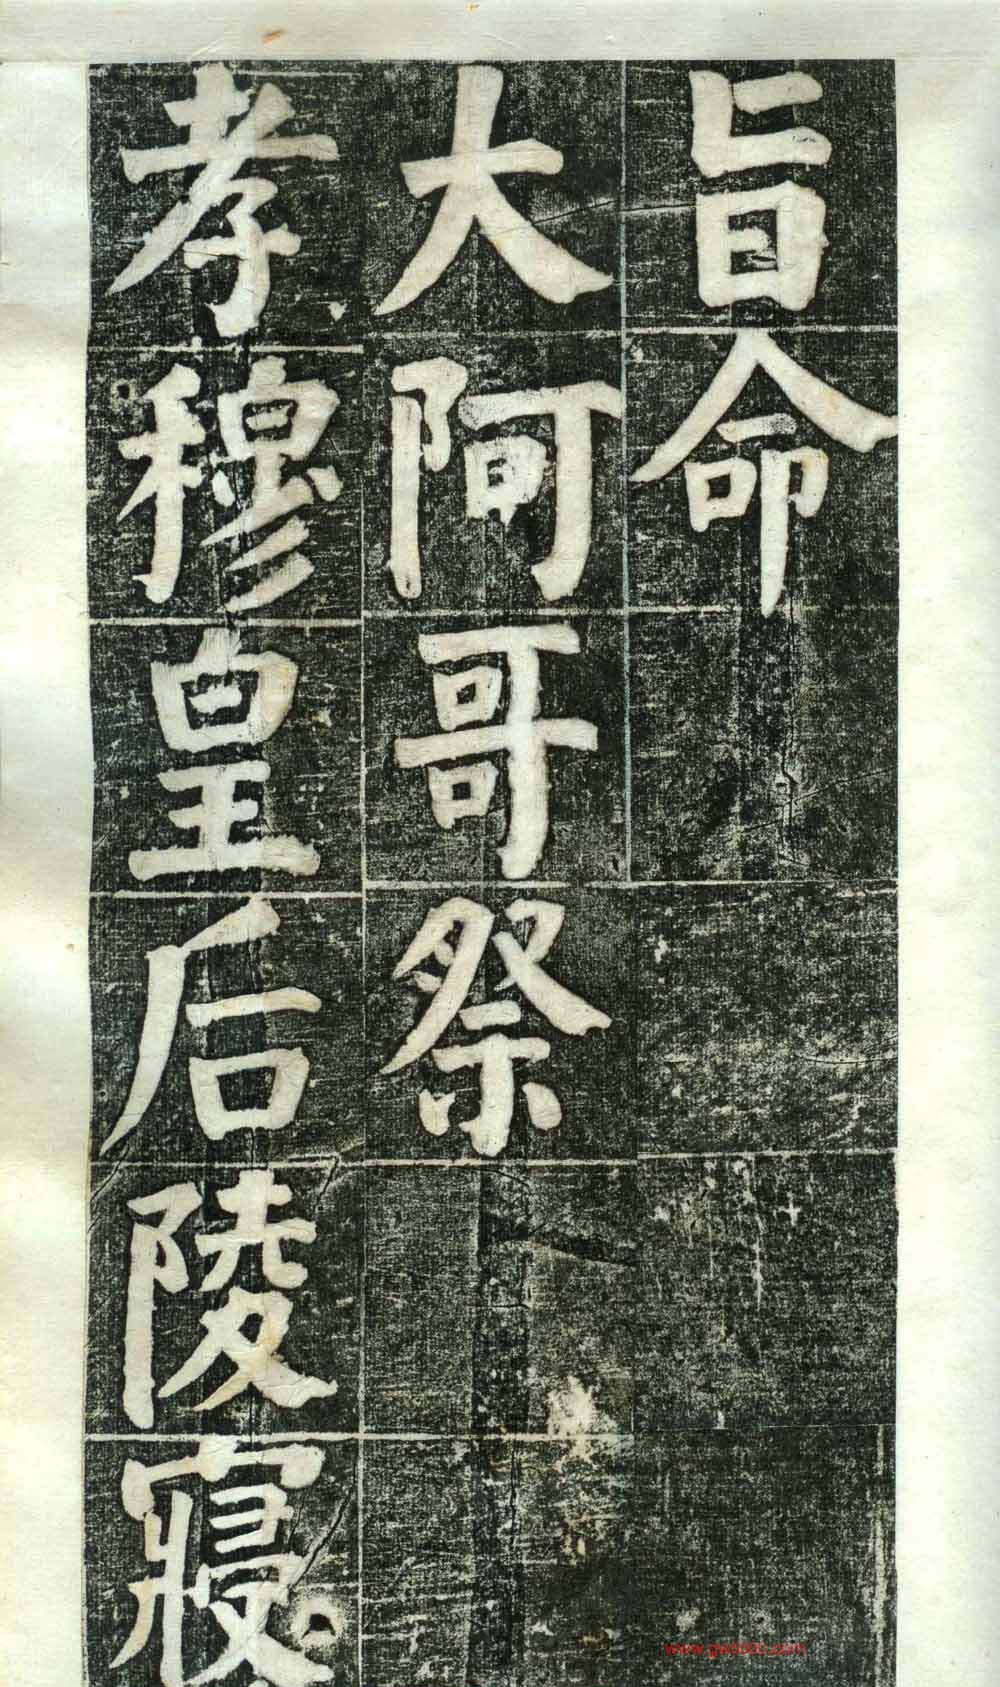 旨命
大阿哥祭
孝穆皇后陵寢